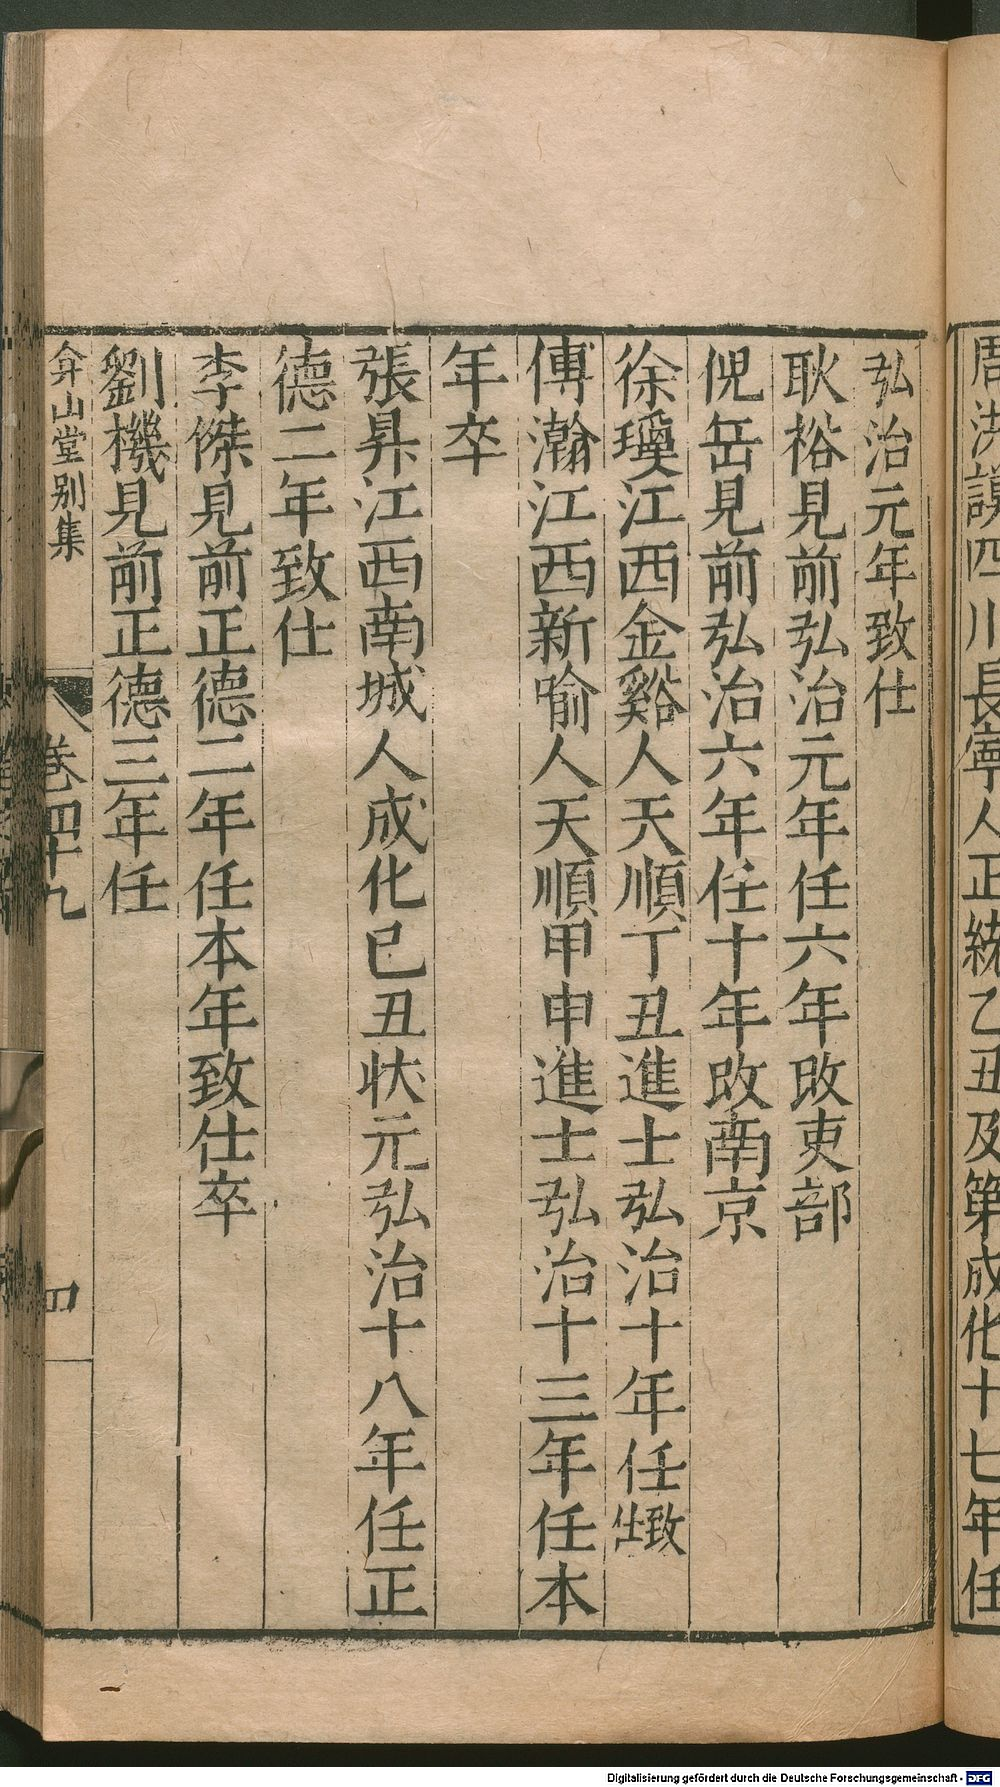 周洪謨四川長寧人正統乙丑及第成化十七年任
弘治元年致仕
耿裕見前弘治元年任六年改吏部
倪岳見前弘治六年任十年改南京
徐瓊江西金谿人天順丁丑進士弘治十年任致仕
傅瀚江西新喻人天順甲申進士弘治十三年任本
年卒
張昇江西南城人成化己丑狀元弘治十八年任正
德二年致仕
李傑見前正德二年任本年致仕卒
劉機見前正德三年任
弇山堂别集
卷四十九
四
Digitalisierung gefördert durch die Deutsche Forschungsgemeinschaft - DFG